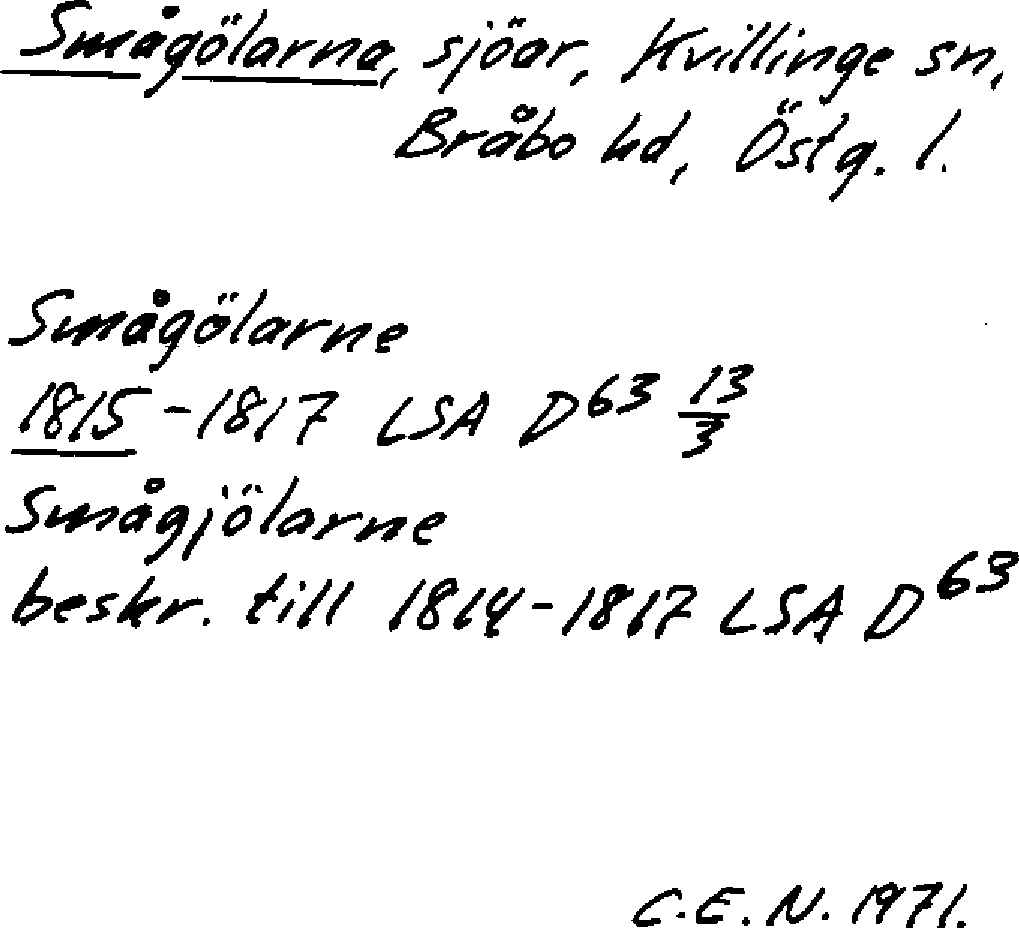 Smågölarna, sjöar, Kvillinge sn,
Bråbo hd, Östg. l.
Smågölarne
1815-1817 LSA D63 13/3
Smågjölarne
beskr. till 1814-1817 LSA D63
C.E.N. 1971.